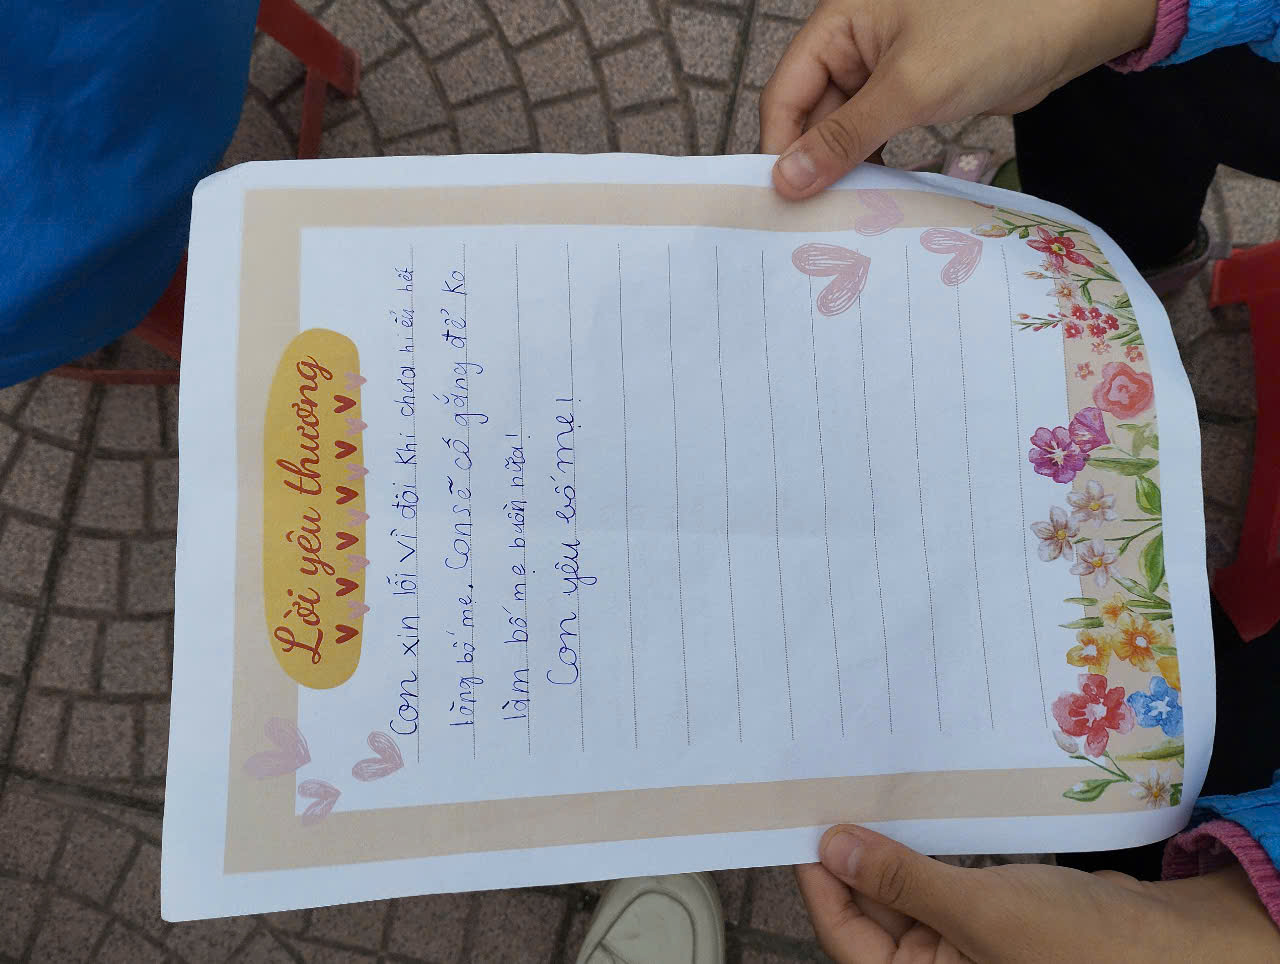 Lời yêu thương
Con xin lỗi vì đôi khi chưa hiểu hết
lòng bố mẹ. Con sẽ cố gắng để ko
làm bố mẹ buồn nữa!
Con yêu bố mẹ!